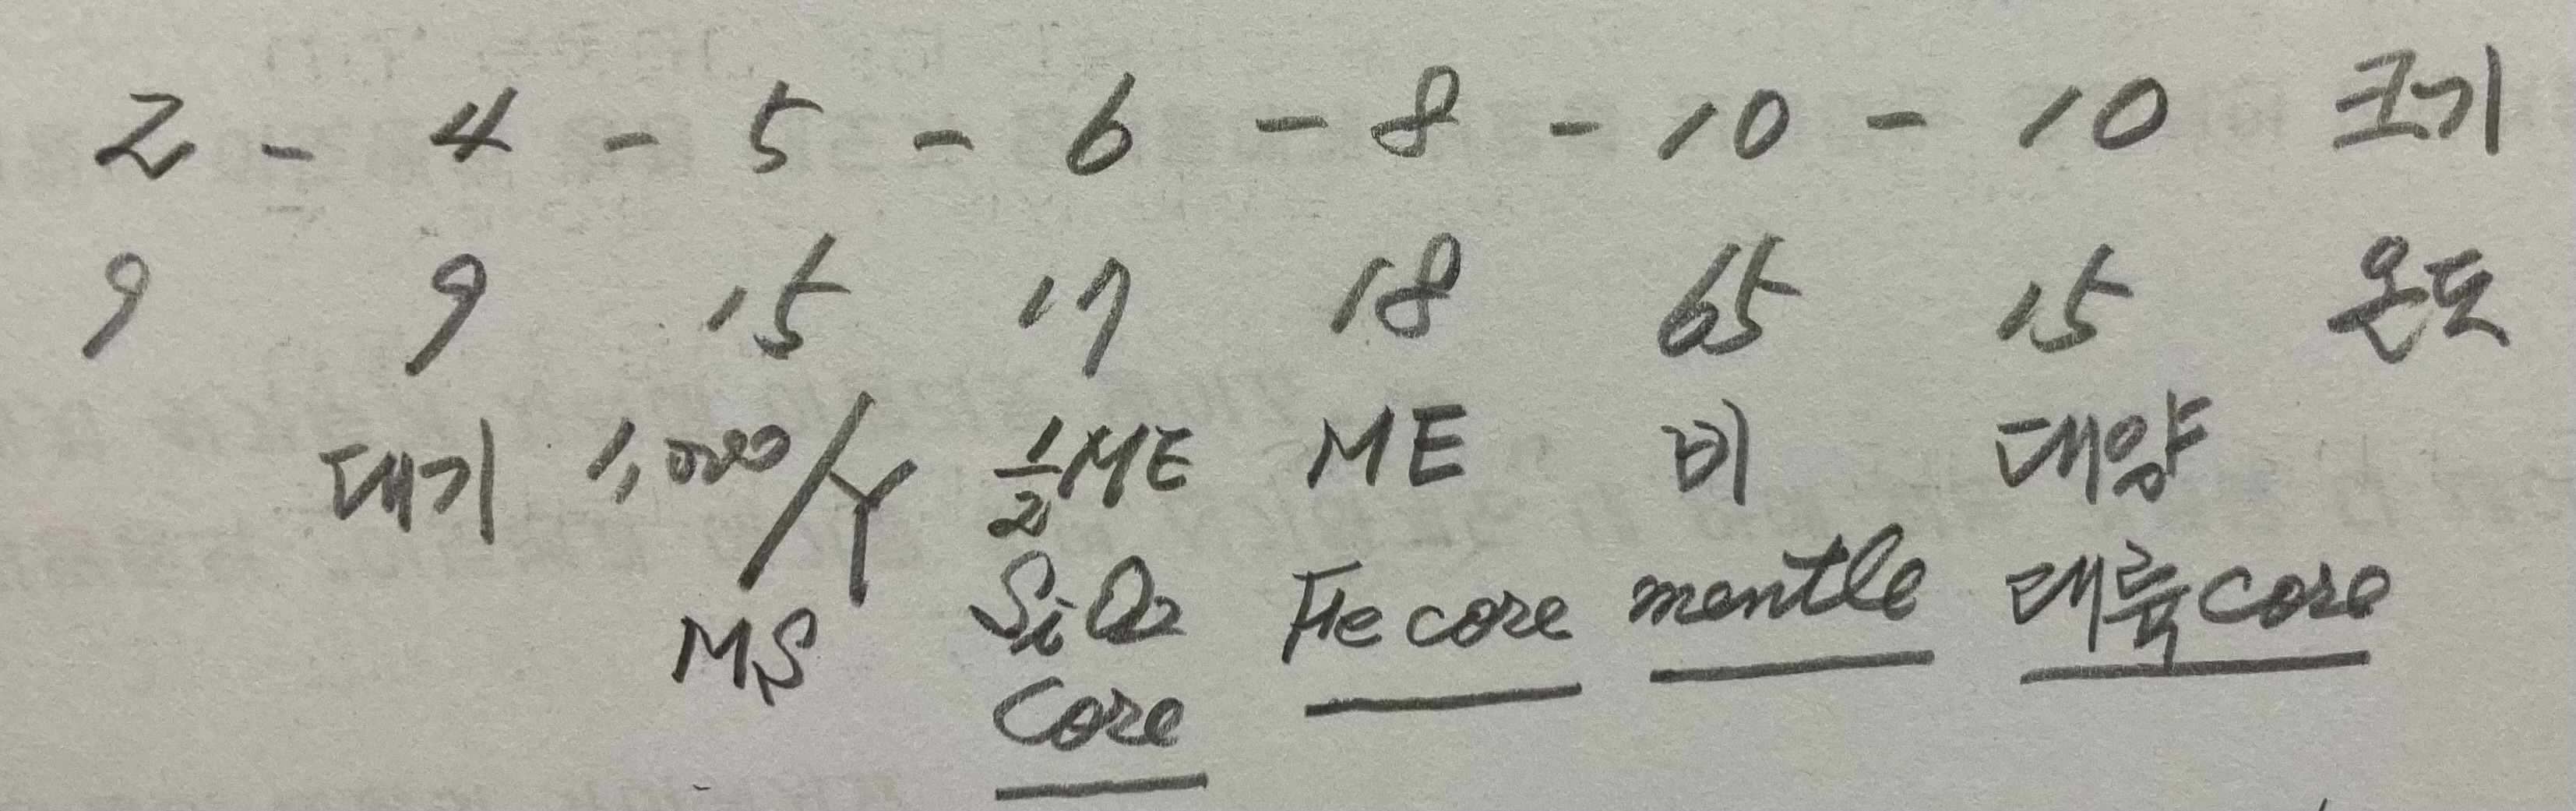 2 - 4 - 5 - 6 - 8 - 10 - 10 크기
9 9 15 17 18 65 15 온도
대기 1,000/Y ½ME ME 비 대양
MS SiO2 Fe core mentle 대륙core
core